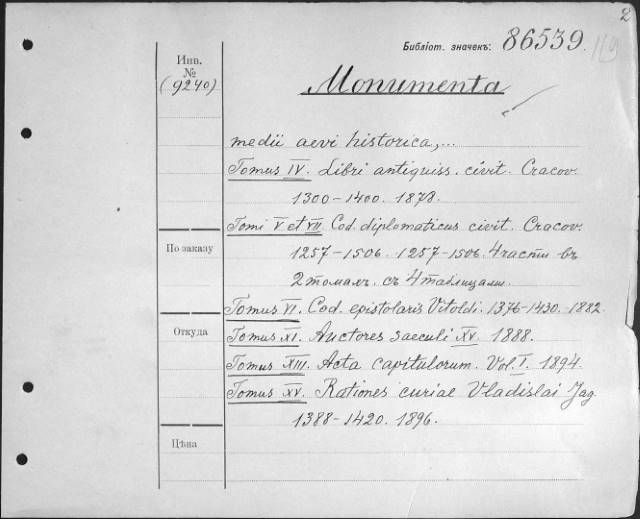 2
Бібліот. значекъ: 86539.
119
Инв.
№
(9240)
Monumenta
medii aevi historica,...
Tomus IV. Libri antiquiss. civit. Cracov.
1300-1400. 1878.
Tomi V et VII. Cod. diplomaticus civit. Cracov.
1257-1506. 1257-1506. 4 части въ
По заказу
2 томахъ. съ 4 таблицами.
Tomus VI. Cod. epistolaris Vitoldi. 1376-1430. 1882.
Откуда
Tomus XI. Auctores saeculi XV. 1888.
Tomus XIII. Acta capitulorum. Vol. I. 1894.
Tomus XV. Rationes curiae Vladislai Jag.
1388-1420. 1896.
Цѣна